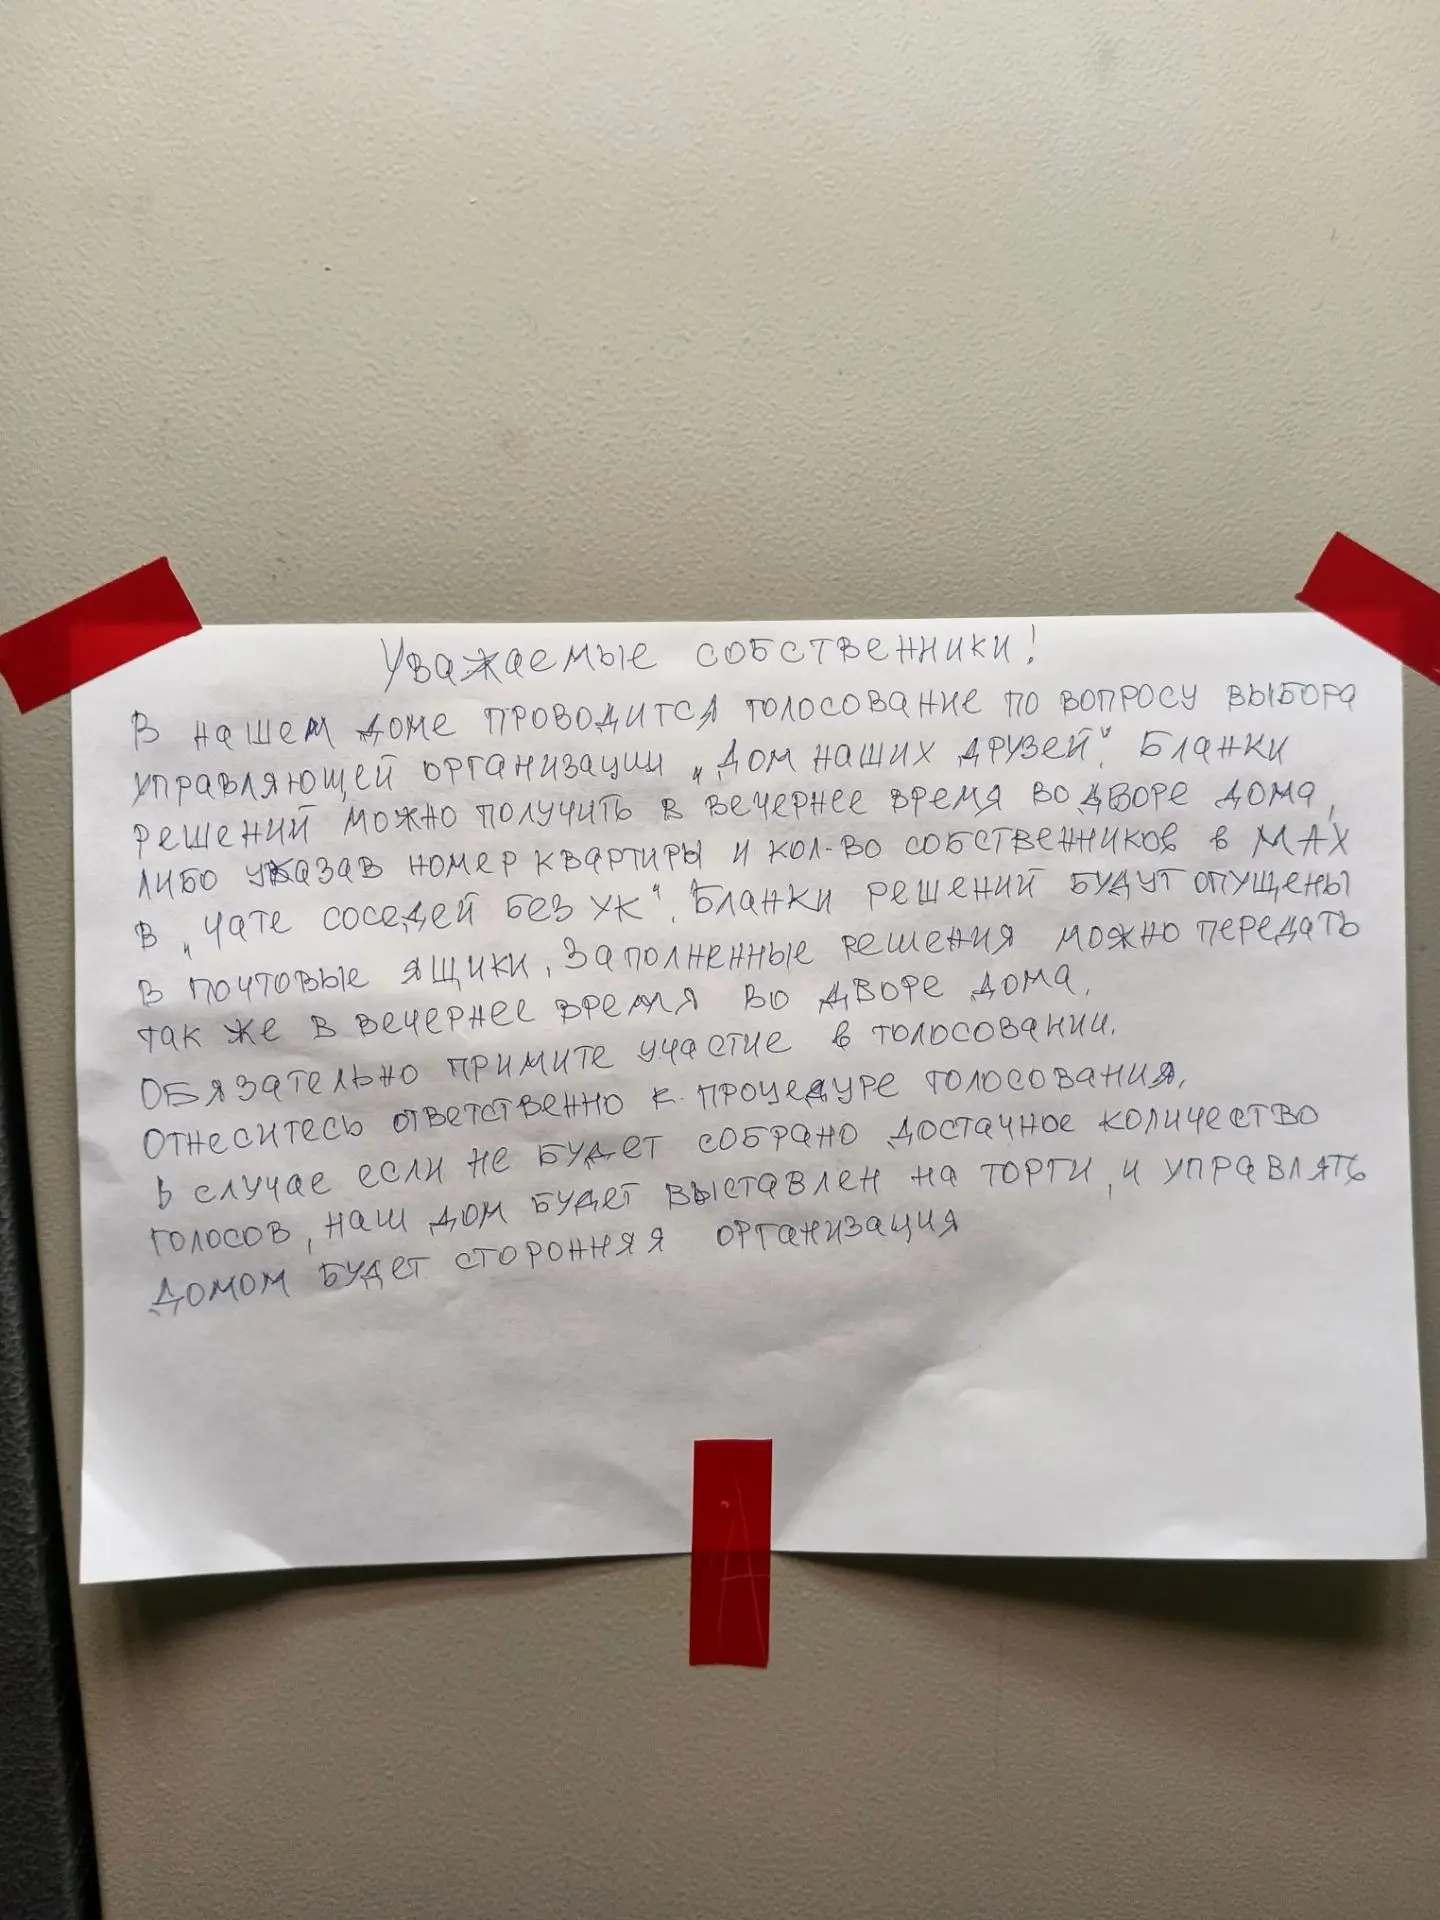 Уважаемые собственники!
В нашем доме проводится голосование по вопросу выбора
управляющей организации „Дом наших друзей". Бланки
решений можно получить в вечернее время во дворе дома,
либо указав номер квартиры и кол-во собственников в МАХ
в „Чате соседей без УК". Бланки решений будут опущены
в почтовые ящики. Заполненные решения можно передать
так же в вечернее время во дворе дома.
Обязательно примите участие в голосовании.
Отнеситесь ответственно к процедуре голосования.
В случае если не будет собрано достачное количество
голосов, наш дом будет выставлен на торги, и управлять
домом будет сторонняя организация